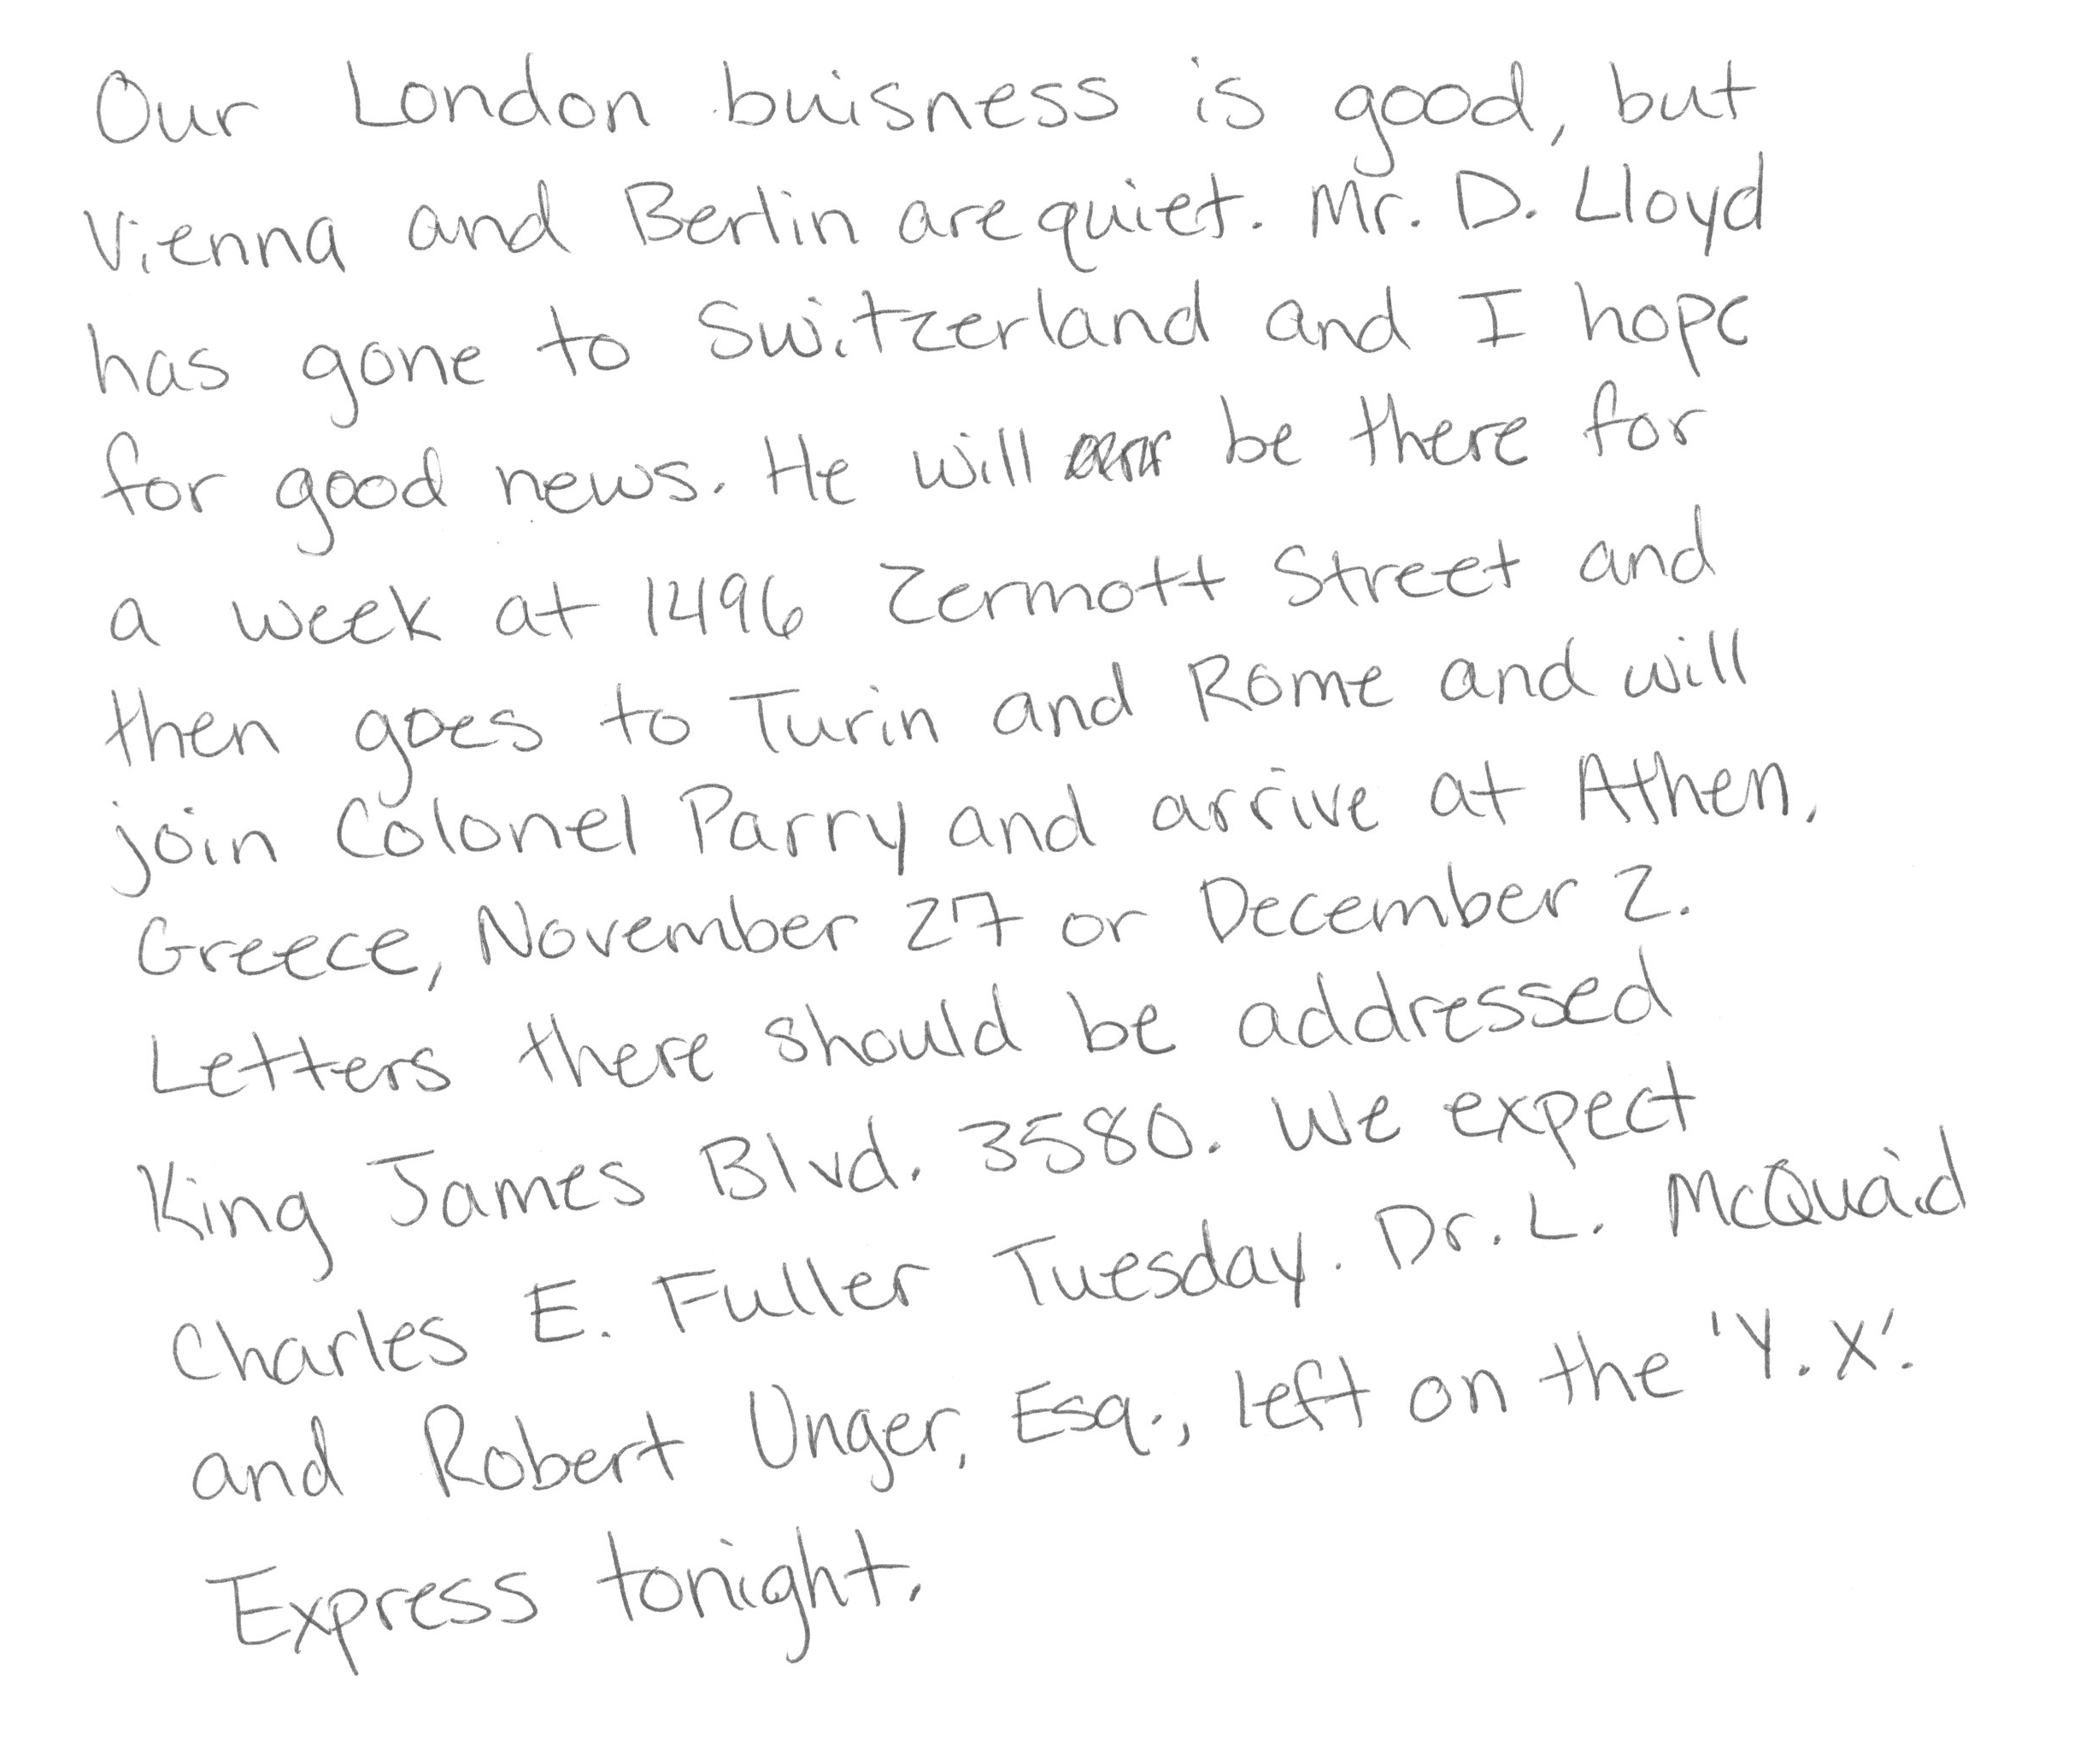 Our London buisness is good, but
Vienna and Berlin are quiet. Mr. D. Lloyd
has gone to Switzerland and I hope
for good news. He will be there for
a week at 1496 Zermott Street and
then goes to Turin and Rome and will
join Colonel Parry and arrive at Athen,
Greece, November 27 or December 2.
Letters there should be addressed
King James Blvd. 3580. We expect
Charles E. Fuller Tuesday. Dr. L. McQuaid
and Robert Unger, Esq., left on the 'Y.X'.
Express tonight.